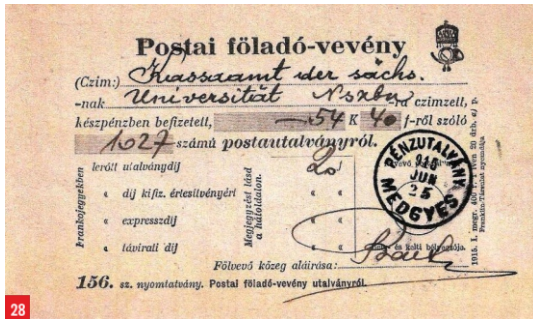 Postai föladó-vevény
(Czim:) Kassaamt der sächs.
-nak Universität Nszben -ra czimzett,
készpénzben befizetett, —54 K 40 f-ről szóló
1027 számú postautalványról.
Frankojegyekben
lerótt utalványdíj
« díj kifiz. értesítvényért
« expresszdíj
« távirati díj
Megjegyzést lásd a hátoldalon.
20
PÉNZUTALVÁNY
916
JUN
25
MEDGYES
és kelti bélyegzője.
Fölvevő közeg aláirása:
156. sz. nyomtatvány. Postai föladó-vevény utalványról.
Franklin-Társulat nyomdája
28